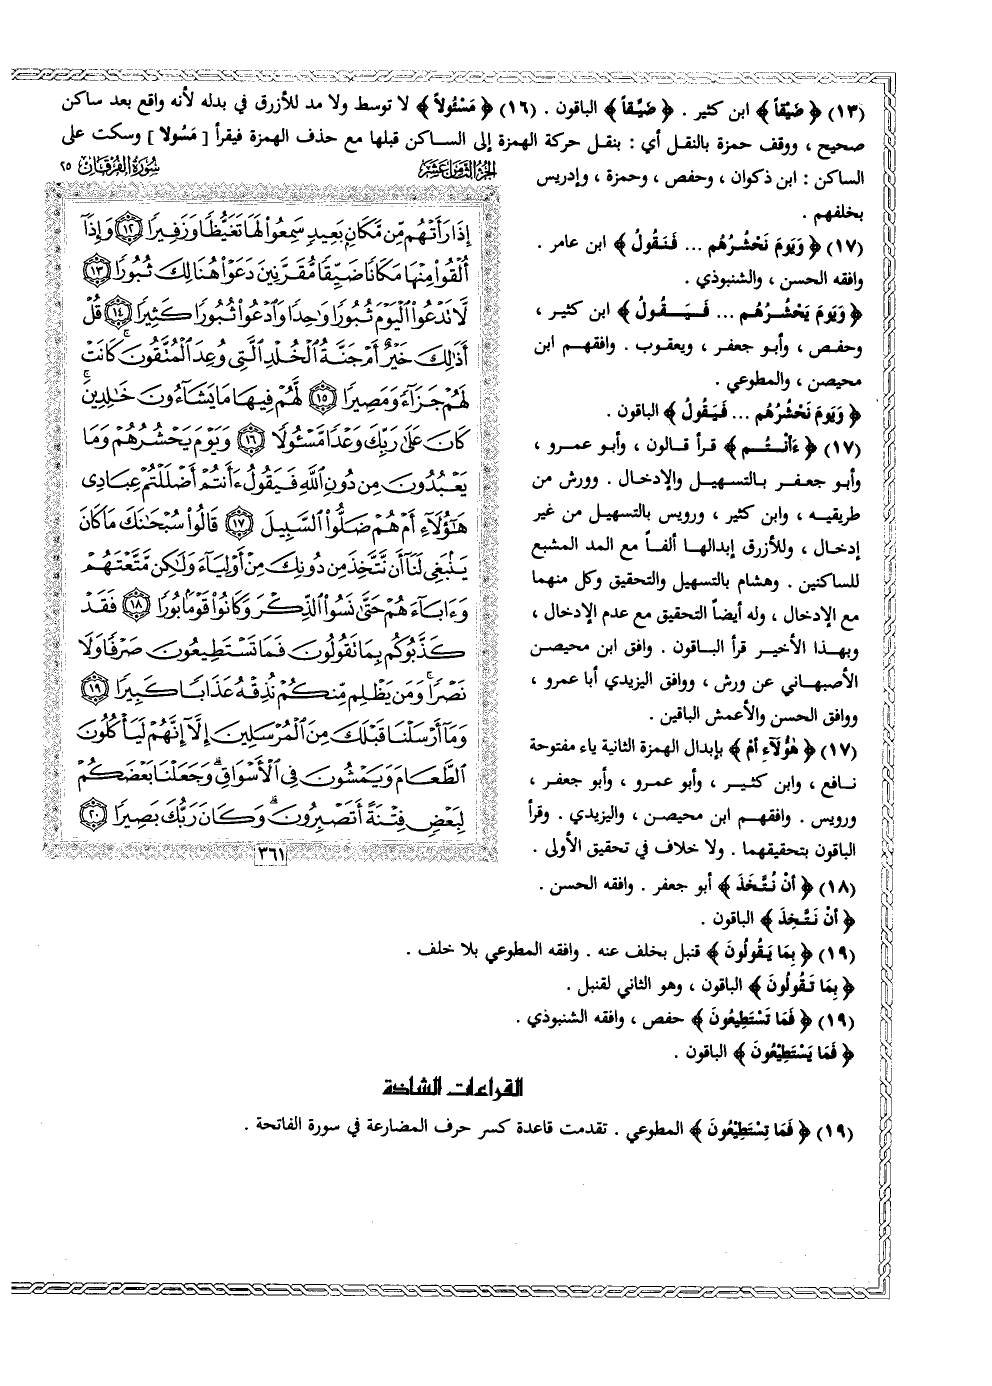 (١٣) ﴿ ضَيْقاً ﴾ ابن كثير . ﴿ ضَيِّقاً ﴾ الباقون . (١٦) ﴿ مَسْئُولاً ﴾ لا توسط ولا مد للأزرق في بدله لأنه واقع بعد ساكن
صحيح ، ووقف حمزة بالنقل أي : بنقل حركة الهمزة إلى الساكن قبلها مع حذف الهمزة فيقرأ [ مَسُولا ] وسكت على
الساكن : ابن ذكوان ، وحفص ، وحمزة ، وإدريس
بخلفهم .
(١٧) ﴿ وَيَومَ نَحْشُرُهُم ... فَنَقُولُ ﴾ ابن عامر .
وافقه الحسن ، والشنبوذي .
﴿ وَيَومَ يَحْشُرُهُم ... فَـيَـقُـولُ ﴾ ابن كثير ،
وحفص ، وأبو جعفر ، ويعقوب . وافقهم ابن
محيصن ، والمطوعي .
﴿ وَيَومَ نَحْشُرُهُم ... فَيَقُولُ ﴾ الباقون .
(١٧) ﴿ ءَأَنـتُـم ﴾ قرأ قالون ، وأبو عمرو ،
وأبو جعفر بالتسهيل والإدخال . وورش من
طريقيه ، وابن كثير ، ورويس بالتسهيل من غير
إدخال ، وللأزرق إبدالها ألفاً مع المد المشبع
للساكنين . وهشام بالتسهيل والتحقيق وكل منهما
مع الإدخال ، وله أيضاً التحقيق مع عدم الإدخال ،
وبهذا الأخير قرأ الباقون . وافق ابن محيصن
الأصبهاني عن ورش ، ووافق اليزيدي أبا عمرو ،
ووافق الحسن والأعمش الباقين .
(١٧) ﴿ هَٰؤُلَآءِ أَمْ ﴾ بإبدال الهمزة الثانية ياء مفتوحة
نافع ، وابن كثير ، وأبو عمرو ، وأبو جعفر ،
ورويس . وافقهم ابن محيصن ، واليزيدي . وقرأ
الباقون بتحقيقهما . ولا خلاف في تحقيق الأولى .
(١٨) ﴿ أنْ نُتَّخَذَ ﴾ أبو جعفر . وافقه الحسن .
﴿ أنْ نَتَّخِذَ ﴾ الباقون .
(١٩) ﴿ بِمَا يَقُولُونَ ﴾ قنبل بخلف عنه . وافقه المطوعي بلا خلف .
﴿ بِمَا تَقُولُونَ ﴾ الباقون ، وهو الثاني لقنبل .
(١٩) ﴿ فَمَا تَسْتَطِيعُونَ ﴾ حفص ، وافقه الشنبوذي .
﴿ فَمَا يَسْتَطِيْعُونَ ﴾ الباقون .
القراءات الشاذة
(١٩) ﴿ فَمَا تِسْتَطِيْعُونَ ﴾ المطوعي . تقدمت قاعدة كسر حرف المضارعة في سورة الفاتحة .
الجزء الثامن عشر سورة الفرقان ٢٥
إِذَا رَأَتْهُم مِّن مَّكَانٍۭ بَعِيدٍ سَمِعُوا۟ لَهَا تَغَيُّظًا وَزَفِيرًا ١٢ وَإِذَآ
أُلْقُوا۟ مِنْهَا مَكَانًا ضَيِّقًا مُّقَرَّنِينَ دَعَوْا۟ هُنَالِكَ ثُبُورًا ١٣
لَّا تَدْعُوا۟ ٱلْيَوْمَ ثُبُورًا وَٰحِدًا وَٱدْعُوا۟ ثُبُورًا كَثِيرًا ١٤ قُلْ
أَذَٰلِكَ خَيْرٌ أَمْ جَنَّةُ ٱلْخُلْدِ ٱلَّتِى وُعِدَ ٱلْمُتَّقُونَ ۚ كَانَتْ
لَهُمْ جَزَآءً وَمَصِيرًا ١٥ لَّهُمْ فِيهَا مَا يَشَآءُونَ خَٰلِدِينَ ۚ
كَانَ عَلَىٰ رَبِّكَ وَعْدًا مَّسْـُٔولًا ١٦ وَيَوْمَ يَحْشُرُهُمْ وَمَا
يَعْبُدُونَ مِن دُونِ ٱللَّهِ فَيَقُولُ ءَأَنتُمْ أَضْلَلْتُمْ عِبَادِى
هَٰٓؤُلَآءِ أَمْ هُمْ ضَلُّوا۟ ٱلسَّبِيلَ ١٧ قَالُوا۟ سُبْحَٰنَكَ مَا كَانَ
يَنۢبَغِى لَنَآ أَن نَّتَّخِذَ مِن دُونِكَ مِنْ أَوْلِيَآءَ وَلَٰكِن مَّتَّعْتَهُمْ
وَءَابَآءَهُمْ حَتَّىٰ نَسُوا۟ ٱلذِّكْرَ وَكَانُوا۟ قَوْمًۢا بُورًا ١٨ فَقَدْ
كَذَّبُوكُم بِمَا تَقُولُونَ فَمَا تَسْتَطِيعُونَ صَرْفًا وَلَا
نَصْرًا ۚ وَمَن يَظْلِم مِّنكُمْ نُذِقْهُ عَذَابًا كَبِيرًا ١٩
وَمَآ أَرْسَلْنَا قَبْلَكَ مِنَ ٱلْمُرْسَلِينَ إِلَّآ إِنَّهُمْ لَيَأْكُلُونَ
ٱلطَّعَامَ وَيَمْشُونَ فِى ٱلْأَسْوَاقِ ۗ وَجَعَلْنَا بَعْضَكُمْ
لِبَعْضٍ فِتْنَةً أَتَصْبِرُونَ ۗ وَكَانَ رَبُّكَ بَصِيرًا ٢٠
٣٦١